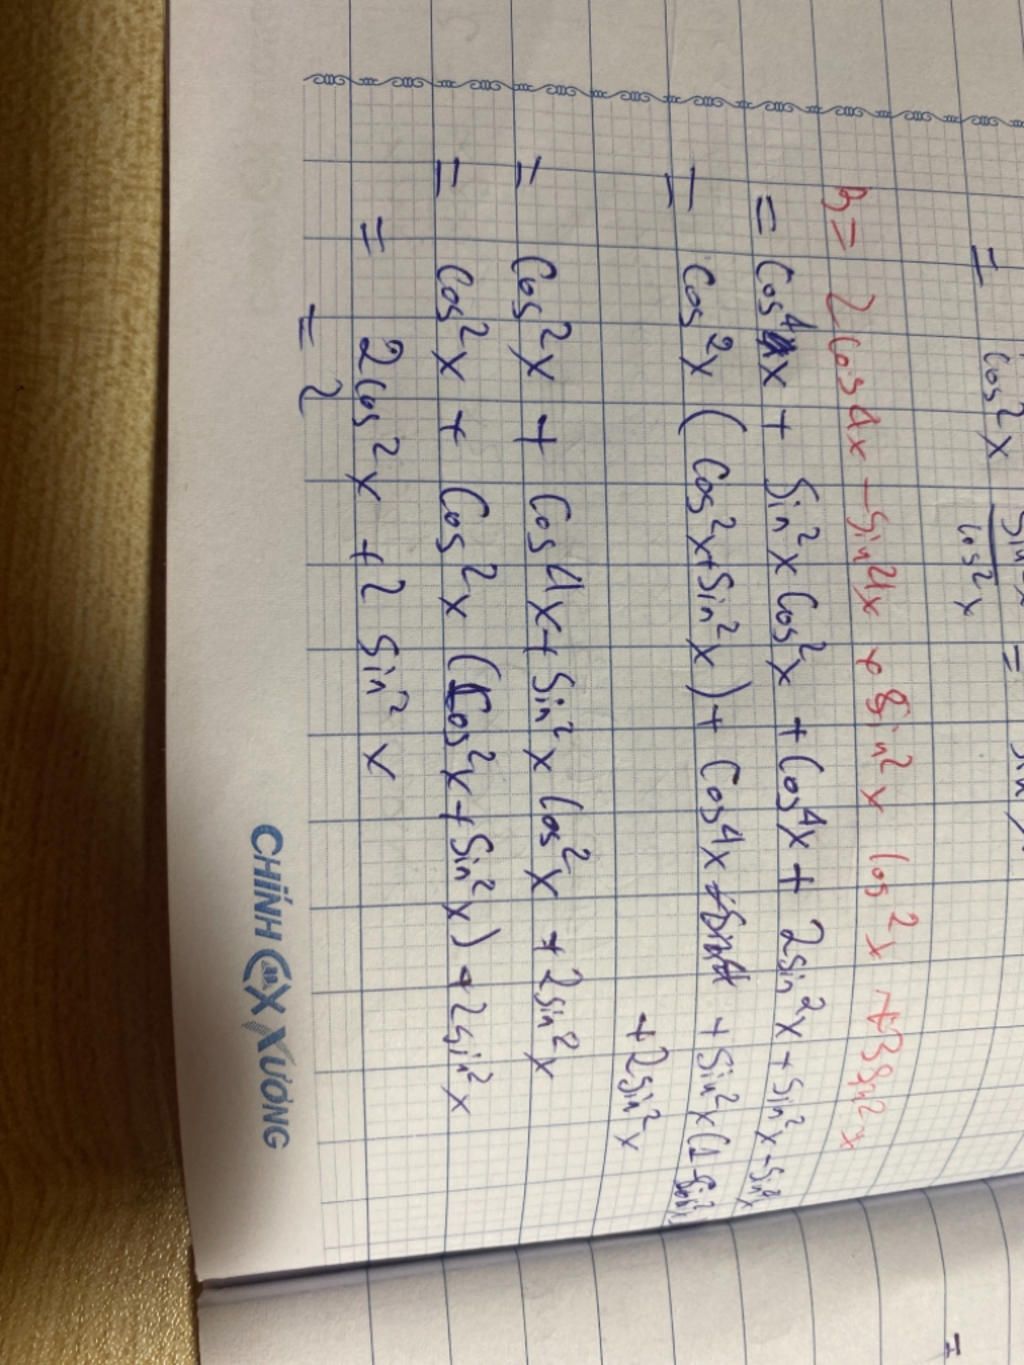 = cos²x
sin²x / cos²x =
B = 2cos⁴x - sin⁴x + sin²x cos²x + 3sin²x
= cos⁴x + sin²x cos²x + cos⁴x + 2sin²x + sin²x - sin⁴x
= cos²x (cos²x + sin²x) + cos⁴x + sin²x (1 - sin²x)
+ 2sin²x
= cos²x + cos⁴x + sin²x cos²x + 2sin²x
= cos²x + cos²x (cos²x + sin²x) + 2sin²x
= 2cos²x + 2 sin²x
= 2
CHÍNH XƯƠNG